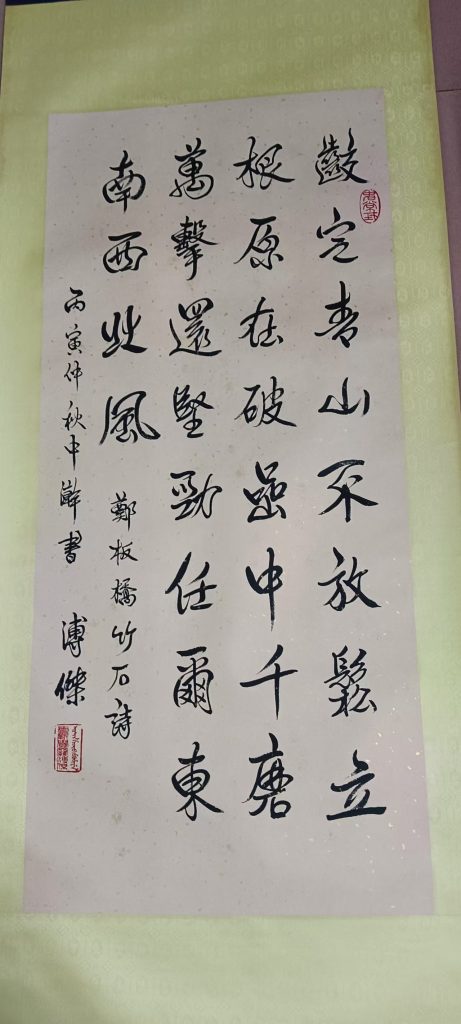 齩定青山不放鬆立
根原在破嵒中千磨
萬擊還堅勁任爾東
南西北風 鄭板橋竹石詩
丙寅仲秋中澣書 溥傑